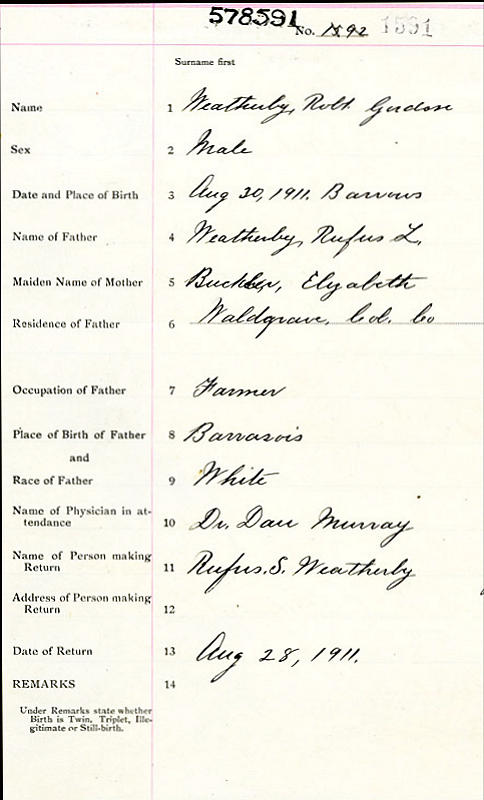 578591
No. 1592 1591
Surname first
Name 1 Weatherby, Robt. Gordon
Sex 2 Male
Date and Place of Birth 3 Aug 30, 1911. Barrows
Name of Father 4 Weatherby, Rufus L.
Maiden Name of Mother 5 Buckler, Elyabeth
Residence of Father 6 Waldgrave, Col. Co
Occupation of Father 7 Farmer
Place of Birth of Father 8 Barrasois
and
Race of Father 9 White
Name of Physician in at-
tendance 10 Dr. Dan Murray
Name of Person making
Return 11 Rufus. S. Weatherby
Address of Person making
Return 12
Date of Return 13 Aug 28, 1911.
REMARKS 14
Under Remarks state whether
Birth is Twin, Triplet, Ille-
gitimate or Still-birth.